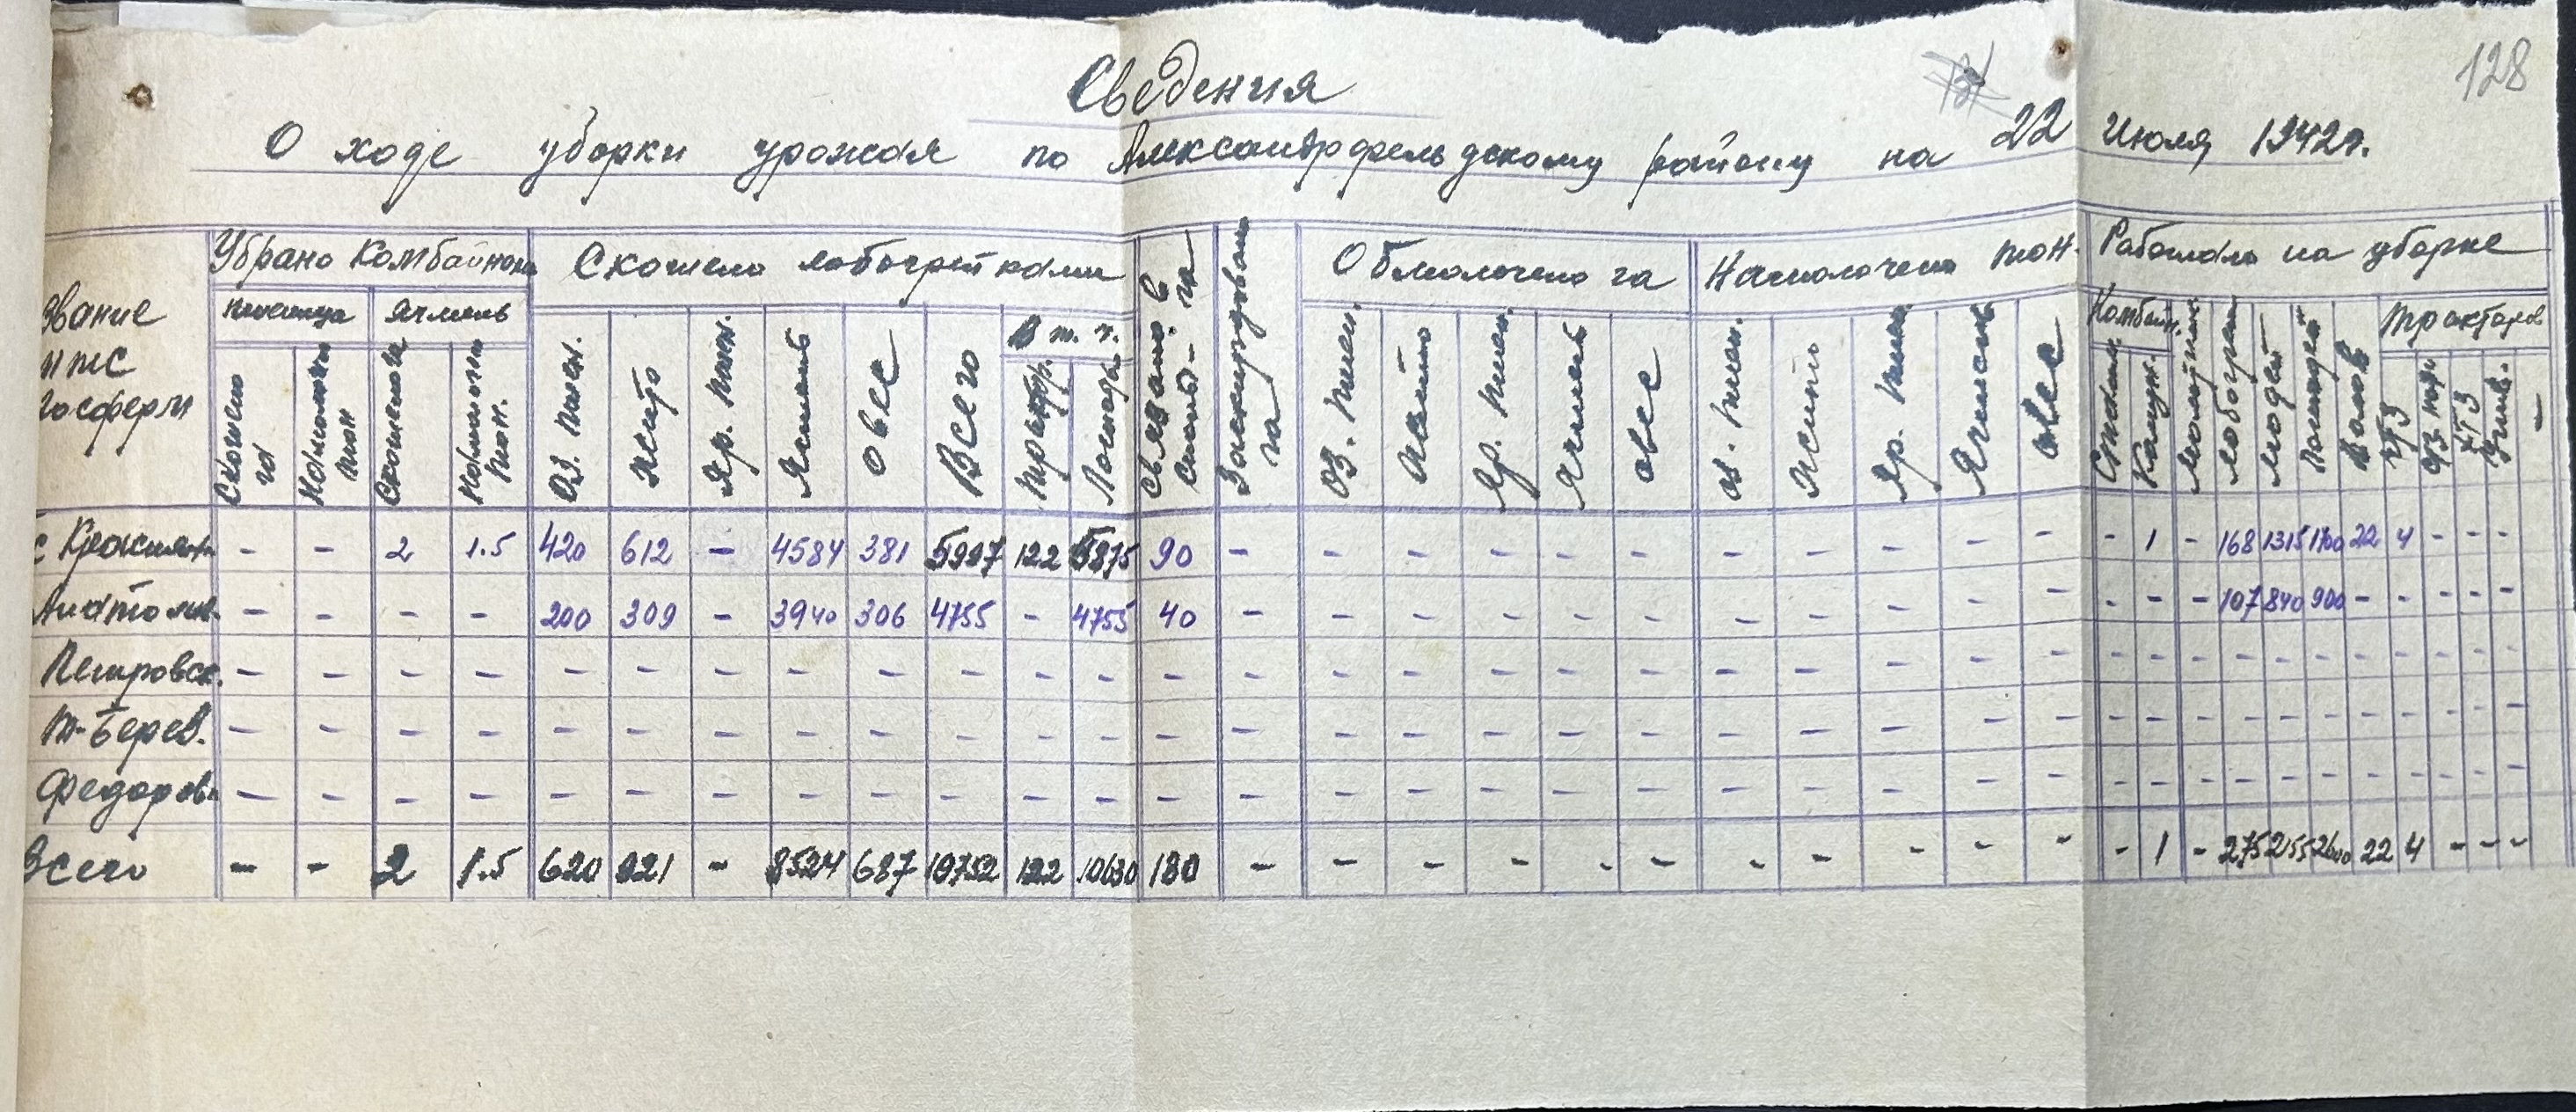 128
Сведения
О ходе уборки урожая по Александрофельдскому району на 22 Июля 1942г.
звание мтс госферм
Убрано Комбайном
Скошено лобогрейками
Связано в снопы - га
Заскирдовано га
Обмолочено га
Намолочено тон.
Работало на уборке
пшеница ячмень
в т. ч.
Комбайн. Тракторов
Скошено га Намолочено тон Скошено га Намолочено тон. Оз. пшен. Жито Яр. пшен. Ячмень Овес Всего Трактор. Лошадьми Оз. пшен. Жито Яр. пшен. Ячмень Овес оз. пшен. Жито Яр. пшен. Ячмень овес Сталин. Комун. лобогреек людей Лошадей Волов ЧТЗ ХТЗ Унив. -
- - 2 1.5 420 612 - 4584 381 5997 122 5875 90 - - - - - - - - - - - - 1 - 168 1315 1700 22 4 - - -
Анатолов. - - - - 200 309 - 3940 306 4755 - 4755 40 - - - - - - - - - - - - - - 107 840 900 - - - - -
Петровск. - - - - - - - - - - - - - - - - - - - - - - - - - - - - - - - - - - -
Т-Берез. - - - - - - - - - - - - - - - - - - - - - - - - - - - - - - - - - - -
Федоров. - - - - - - - - - - - - - - - - - - - - - - - - - - - - - - - - - - -
Всего - - 2 1.5 620 921 - 8524 687 10752 122 10630 130 - - - - - - - - - - - - 1 - 275 2155 2600 22 4 - - -